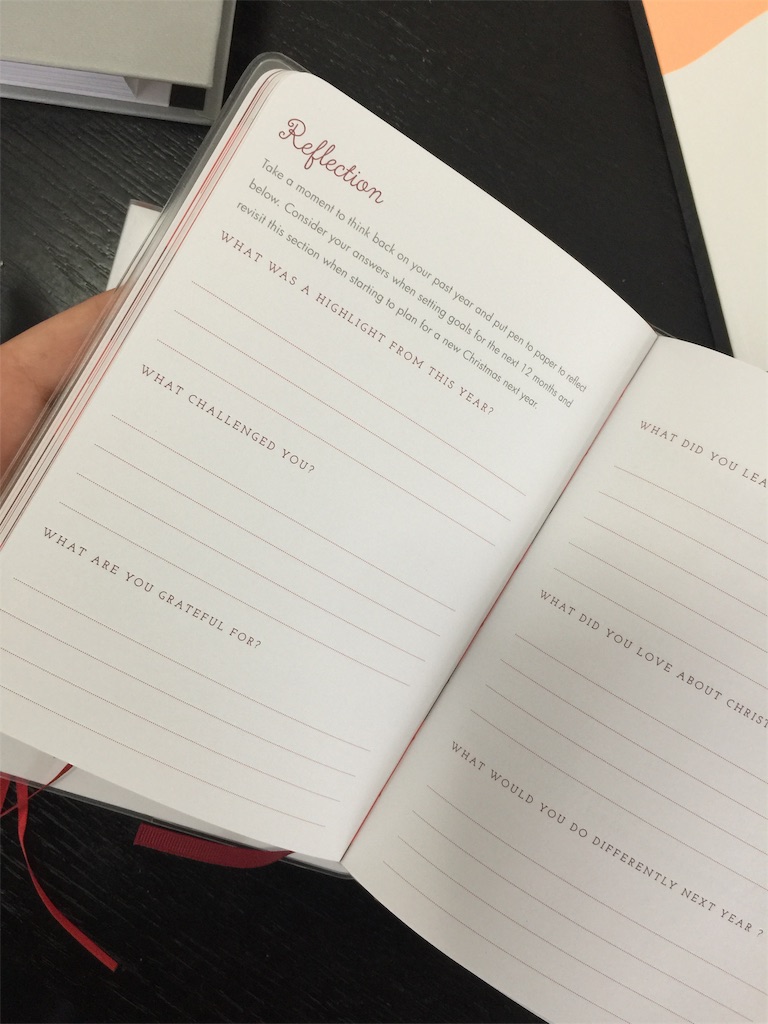 Reflection
Take a moment to think back on your past year and put pen to paper to reflect
below. Consider your answers when setting goals for the next 12 months and
revisit this section when starting to plan for a new Christmas next year.
WHAT WAS A HIGHLIGHT FROM THIS YEAR?
WHAT CHALLENGED YOU?
WHAT ARE YOU GRATEFUL FOR?
WHAT DID YOU LEA
WHAT DID YOU LOVE ABOUT CHRIST
WHAT WOULD YOU DO DIFFERENTLY NEXT YEAR ?